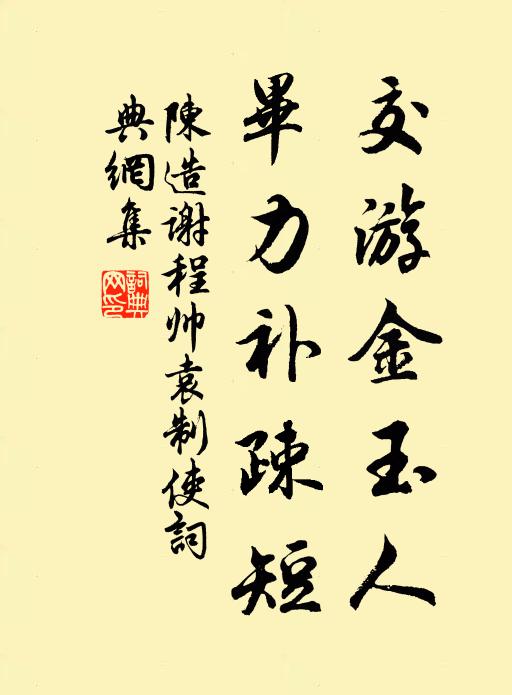 交游金玉人
畢力补疎短
陳造谢程帅袁制使詞
典網集
詞典网印